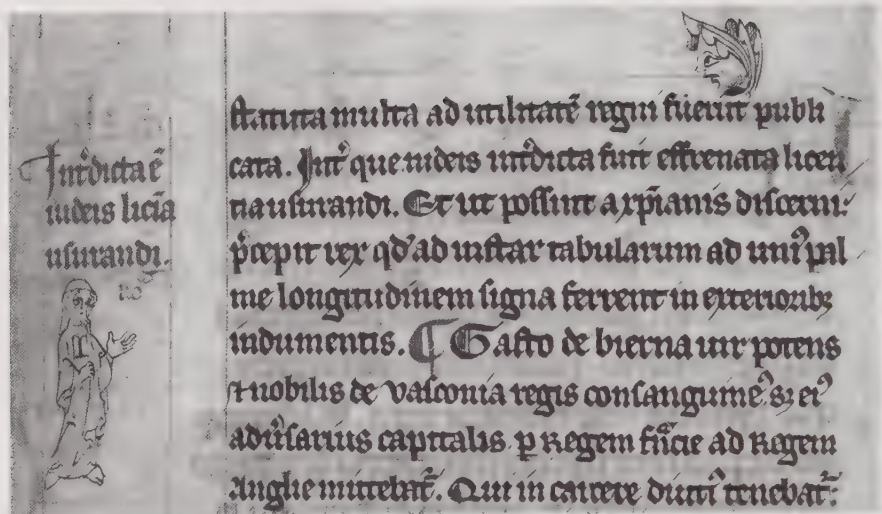 statuta multa ad utilitatē regni fuerūt publi
cata. Int̉ que iudeis int̉dicta sunt effrenata licen
tia usurandi. Et ut possint a xp̄ianis discerni:
p̉cepit rex qd̓ ad instar tabularum ad uni᾽ pal
me longitudinem signa ferrent in exteriorib;
indumentis. ¶ Gasto de bierna uir potens
⁊ nobilis de vasconia regis consanguine᾽ s; ei᾽
adu̓sarius capitalis. p Regem fn̄cie ad Regem
Anglie mittebat̉. Qui in carcere diuti᾽ tenebat̉:
Int̉dicta ē
iudeis licīa
usurandi.